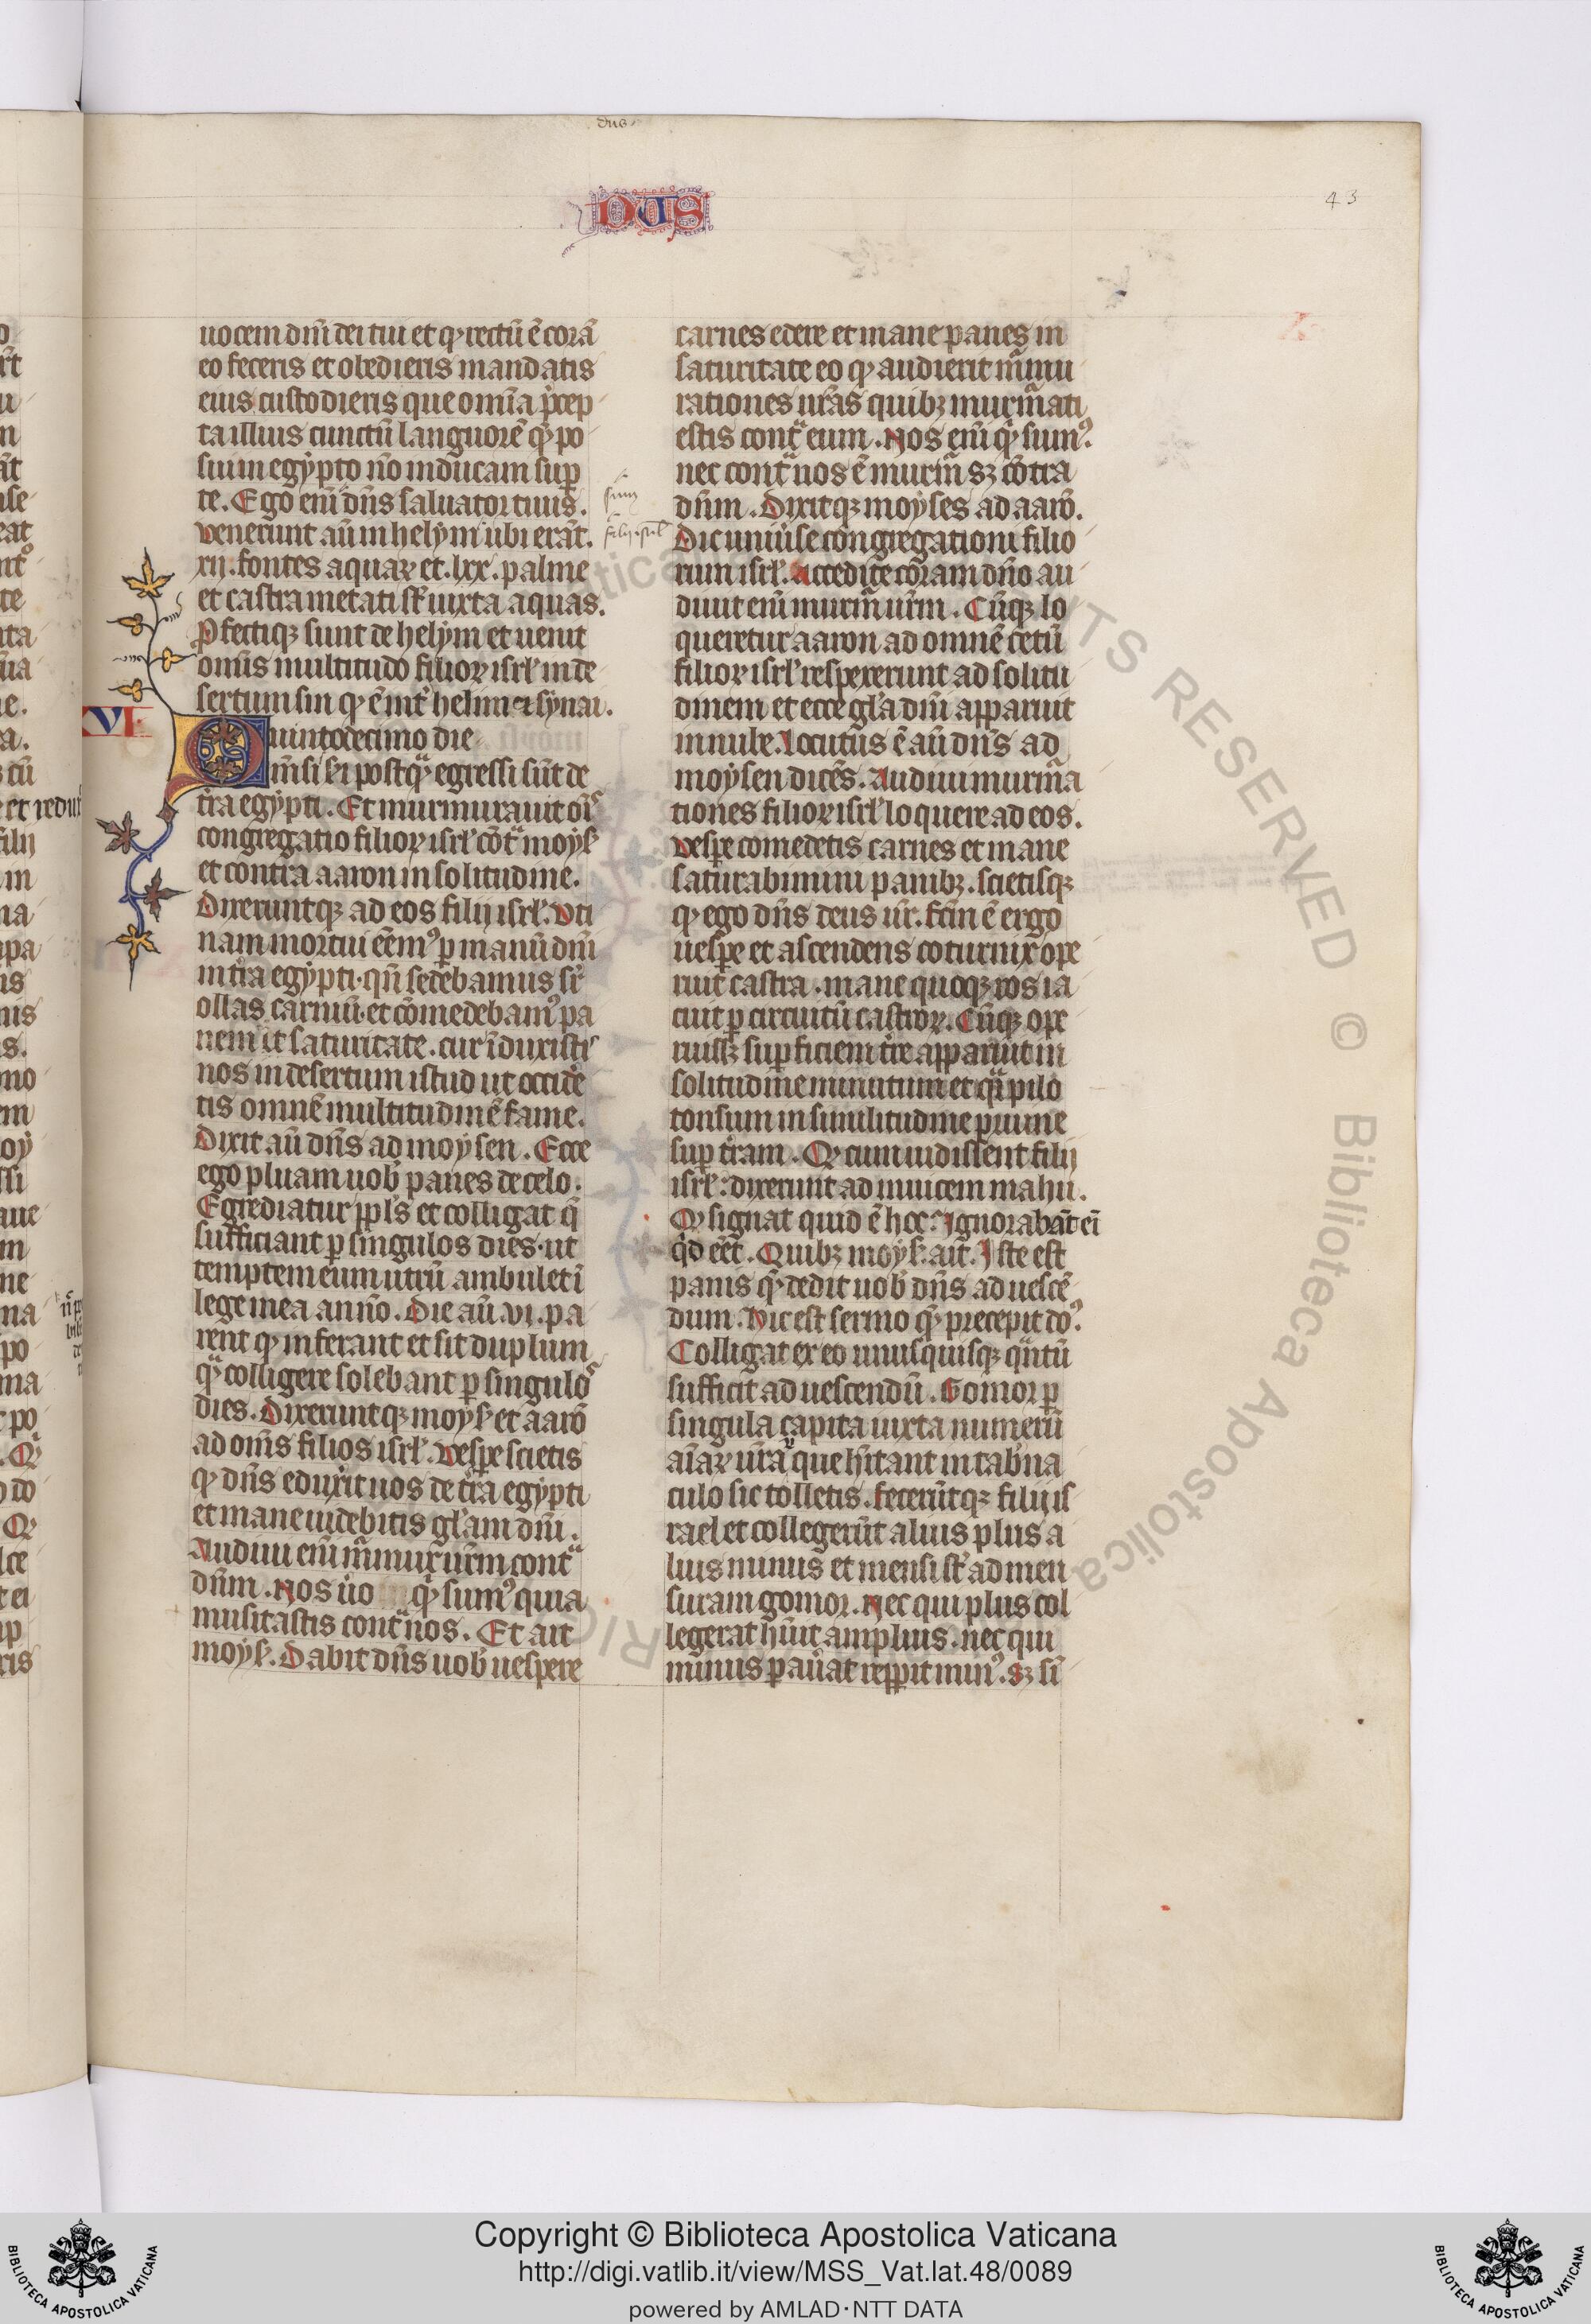 dus
DUS
43
uocem dn̄i dei tui et qͥ rectū ē corā
eo feceris et obedieris mandatis
eius custodieris que omīa p̄cep
ta illius cunctū languorē qͫ po
sui in egypto nō inducam sup̄
te. Ego enī dn̄s saluator tuus.
Venerunt aū in helym ubi erāt.
xij. fontes aquaꝝ et .lxx. palme
et castrametati st̄ iuxta aquas.
Ꝓfectiqꝫ sunt de helym et uenit
omīs multitudo filioꝝ isrl̄ in de
sertum sin qͥ ē int̾ helim ⁊ synai.
XVI
Quintodecimo die
m̄sis ijͥ postqͣ egressi sūt de
t̾ra egypti. Et murmurauit oīs
congregatio filioꝝ isrl̄ cōtͣ moysē
et contra aaron in solitudine.
Dixeruntqꝫ ad eos filij isrl̄. Vti
nam mortui eēmꝰ ꝑ manū dn̄i
in t̾ra egypti· qn̄ sedebamus sr̄
ollas carniū· et cōmedebamꝰ pa
nem ī saturitate. cur īduxisti
nos in desertum istud ut occide
tis omnē multitudinē fame.
Dixit aū dn̄s ad moysen. Ecce
ego pluam uob̄ panes de celo.
Egrediatur ppl̄s et colligat q̄
sufficiant ꝑ singulos dies· ut
temptem eum utrū ambulet ī
lege mea an nō. Die aū .vi. pa
rent qͥ inferant et sit duplum
qͣ colligere solebant ꝑ singulos
dies. Dixeruntqꝫ moysē et aarō
ad om̄s filios isrl̄. Vespe scietis
qͥ dn̄s eduxit uos de t̾ra egypti
et mane uidebitis gl̄am dn̄i.
Audiui enī m̄mur ur̄m contͣ
dn̄m. Nos u̾o qͥ sumꝰ quia
musitastis contͣ nos. Et ait
moysē. Dabit dn̄s uob̄ uespere
carnes edere et mane panes in
saturitate eo qͥ audierit m̄mu
rationes ur̄as quibꝫ murm̄ati
estis contͣ eum. Nos enī qͥ sumꝰ.
nec contͣ nos ē murm̄ sꝫ cōtra
dn̄m. Dixitqꝫ moyses ad aarō.
Dic uniu̾se congregationi filio
rum isrl̄. Accedite coram dn̄o au
diuit enī murm̄ ur̄m. Cūqꝫ lo
queretur aaron ad omnē cetū
filioꝝ isrl̄ respexerunt ad solitu
dinem et ecce gl̄a dn̄i apparuit
in nube. Locutus ē aū dn̄s ad
moysen dicēs. Audiui murm̄a
tiones filioꝝ isrl̄ loquere ad eos.
Vespe comedetis carnes et mane
saturabimini panibꝫ. scietisqꝫ
qͥ ego dn̄s deus ur̄. Fc̄m ē ergo
uespe et ascendens coturnix ope
ruit castra. mane quoqꝫ ros ia
cuit ꝑ circuitū castroꝝ. Cūqꝫ ope
ruissꝫ sup̄ficiem t̾re apparuit in
solitudine minutum et qͣi pilo
tonsum in similitudine pruine
sup̄ t̾ram. Qͥ cum uidissent filij
isrl̄: dixerunt ad inuicem mahu.
Qͥ signat quid ē hoc? Ignorabāt eī
qͥd eēt. Quibꝫ moysē ait. Iste est
panis qͫ dedit uob̄ dn̄s ad uescē
dum. Hic est sermo qͫ precepit doꝰ.
Colligat ex eo unusquisqꝫ qͣntū
sufficit ad uescendū. Gomor ꝑ
singula capita iuxta numerū
aīaꝝ ur̄aꝝ que hītant in tab̾na
culo sic tolletis. Fecerūtqꝫ filij is
rael et collegerūt alius plus a
lius minus et mensi st̄ ad men
suram gomor. Nec qui plus col
legerat hūit amplius. nec qui
minus ꝑau̾at repperit minꝰ. Sꝫ sī
Copyright © Biblioteca Apostolica Vaticana
http://digi.vatlib.it/view/MSS_Vat.lat.48/0089
powered by AMLAD·NTT DATA
BIBLIOTECA APOSTOLICA VATICANA
BIBLIOTECA APOSTOLICA VATICANA